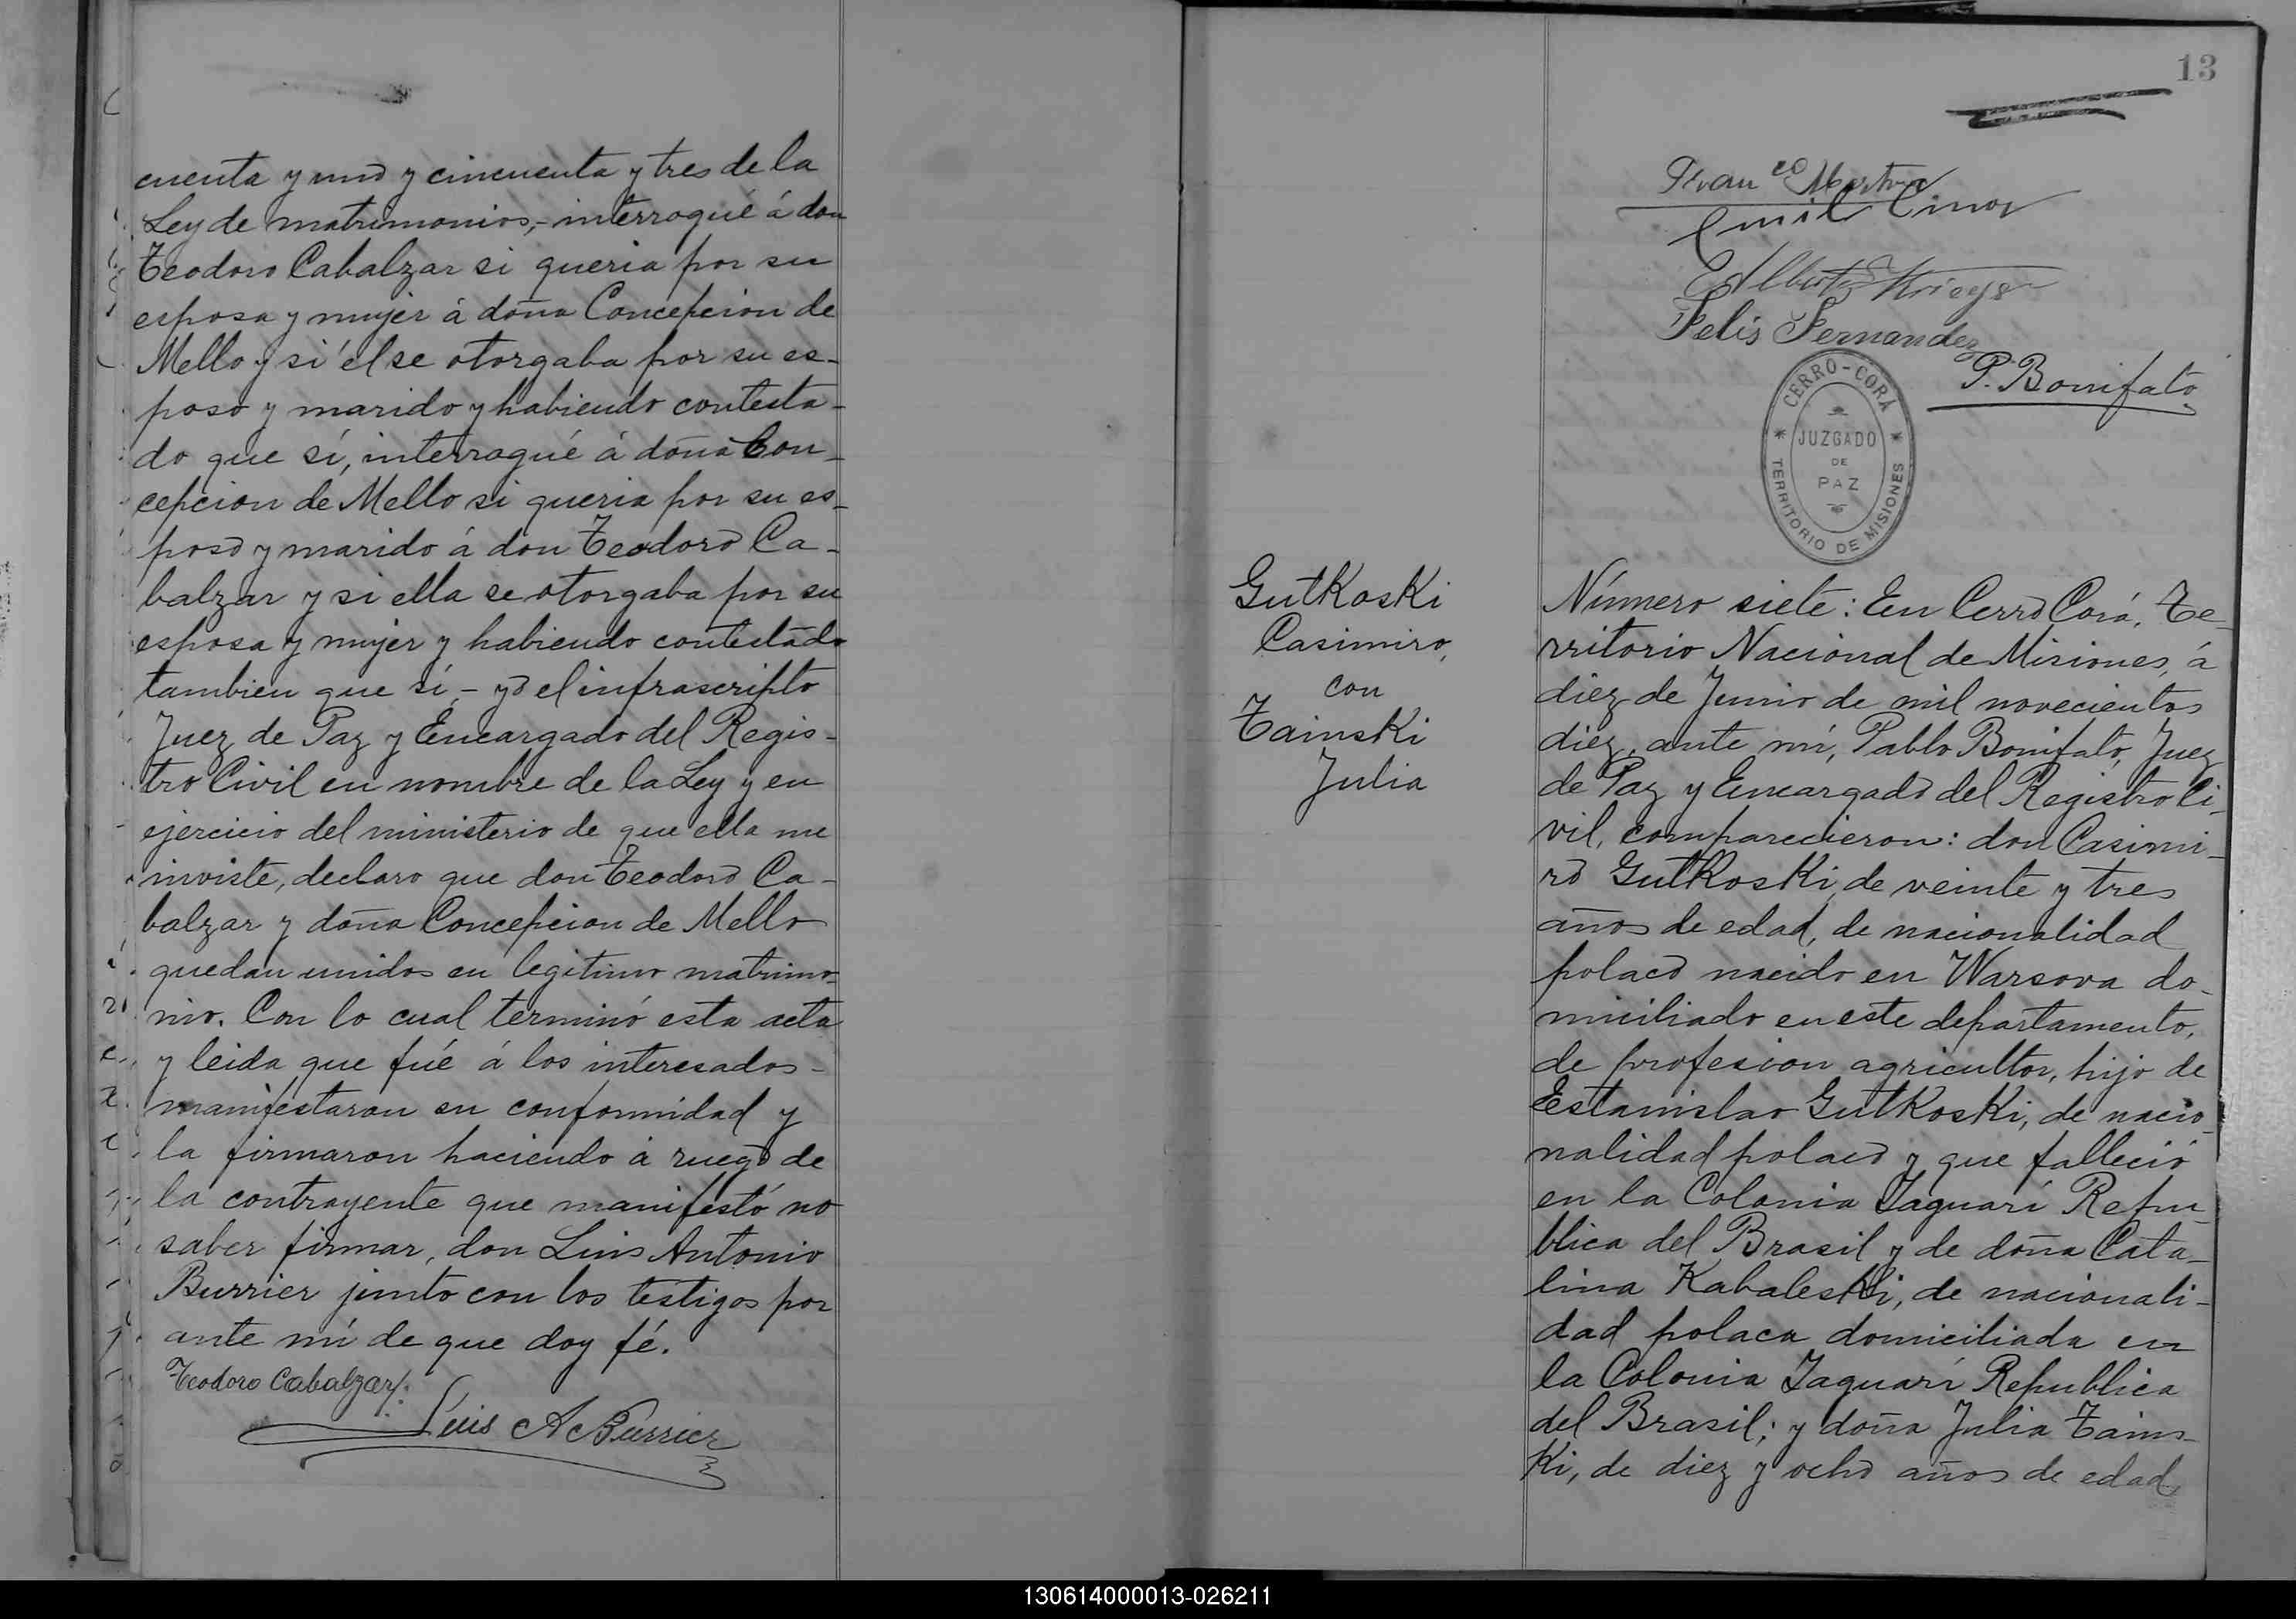 cuenta y uno y cincuenta y tres de la
Ley de matrimonios,- interrogué á don
Teodoro Cabalzar si queria por su
esposa y mujer á doña Concepcion de
Mello y si él se otorgaba por su es-
poso y marido y habiendo contesta-
do que sí, interrogué á doña Con-
cepcion de Mello si queria por su es-
poso y marido á don Teodoro Ca-
balzar y si ella se otorgaba por su
esposa y mujer y habiendo contestado
tambien que sí,- yo el infrascripto
Juez de Paz y Encargado del Regis-
tro Civil en nombre de la Ley y en
ejercicio del ministerio de que ella me
inviste, declaro que don Teodoro Ca-
balzar y doña Concepcion de Mello
quedan unidos en legitimo matrimo-
nio. Con lo cual terminó esta acta
y leida que fué á los interesados-
manifestaron su conformidad y
la firmaron haciendo á ruego de
la contrayente que manifestó no
saber firmar, don Luis Antonio
Burrier junto con los testigos por
ante mí de que doy fé.
Teodoro Cabalzar
Luis A Burrier
13
Emil
Felis Fernandez
P. Bonifato
CERRO-CORÁ
JUZGADO
DE
PAZ
TERRITORIO DE MISIONES
Gutkoski
Casimiro,
con
Tainski
Julia
Número siete: En Cerro Corá, Te-
rritorio Nacional de Misiones, á
diez de Junio de mil novecientos
diez, ante mí, Pablo Bonifato, Juez
de Paz y Encargado del Registro Ci-
vil, comparecieron: don Casimi-
ro Gutkoski, de veinte y tres
años de edad, de nacionalidad
polaco nacido en Warsova do-
miciliado en este departamento,
de profesion agricultor, hijo de
Estanislao Gutkoski, de nacio-
nalidad polaco y que falleció
en la Colonia Jaguarí Repu-
blica del Brasil y de doña Cata-
lina Kabaleski, de nacionali-
dad polaca domiciliada en
la Colonia Jaguarí Republica
del Brasil; y doña Julia Tains-
ki, de diez y ocho años de edad,
130614000013-026211